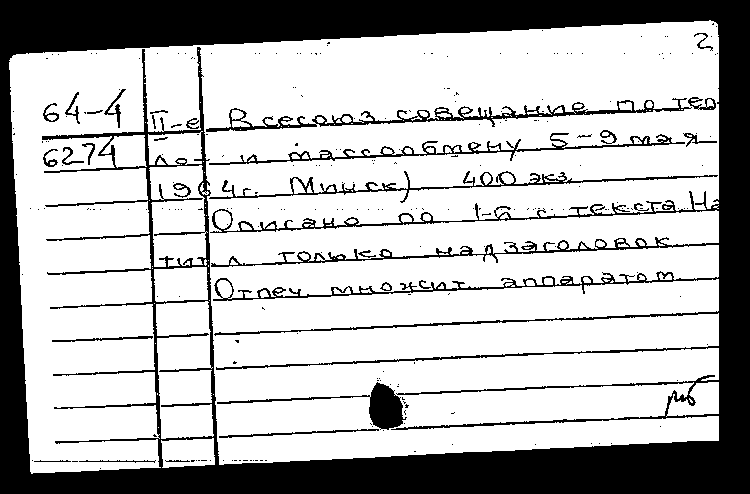 2
64-4 II-е Всесоюз совещание по теп-
6274 ло- и массообмену 5-9 мая
1964г. Минск) 400 экз.
Описано по 1-й с текста. На
тит. л. только надзаголовок
Отпеч. множит. аппаратом